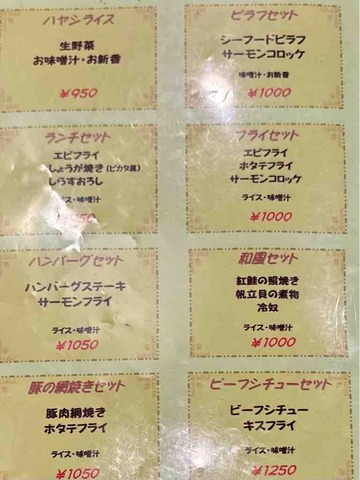 ハヤシライス
生野菜
お味噌汁・お新香
¥950
ピラフセット
シーフードピラフ
サーモンコロッケ
味噌汁・お新香
¥1000
ランチセット
エビフライ
しょうが焼き(ピカタ風)
しらすおろし
ライス・味噌汁
フライセット
エビフライ
ホタテフライ
サーモンコロッケ
ライス・味噌汁
¥1000
ハンバーグセット
ハンバーグステーキ
サーモンフライ
ライス・味噌汁
¥1050
和風セット
紅鮭の照焼き
帆立貝の煮物
冷奴
ライス・味噌汁
¥1000
豚の網焼きセット
豚肉網焼き
ホタテフライ
ライス・味噌汁
¥1050
ビーフシチューセット
ビーフシチュー
キスフライ
ライス・味噌汁
¥1250